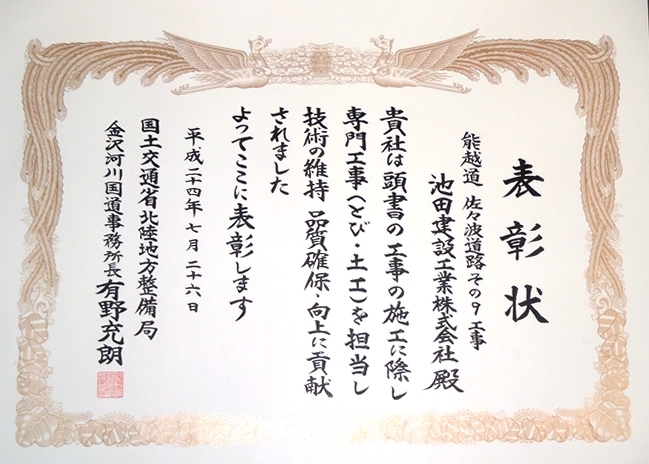 表彰状
能越道 佐々波道路その9工事
池田建設工業株式会社 殿
貴社は頭書の工事の施工に際し
専門工事(とび・土工)を担当し
技術の維持 品質確保・向上に貢献
されました
よってここに表彰します
平成二十四年七月二十六日
国土交通省北陸地方整備局
金沢河川国道事務所長 有野充朗